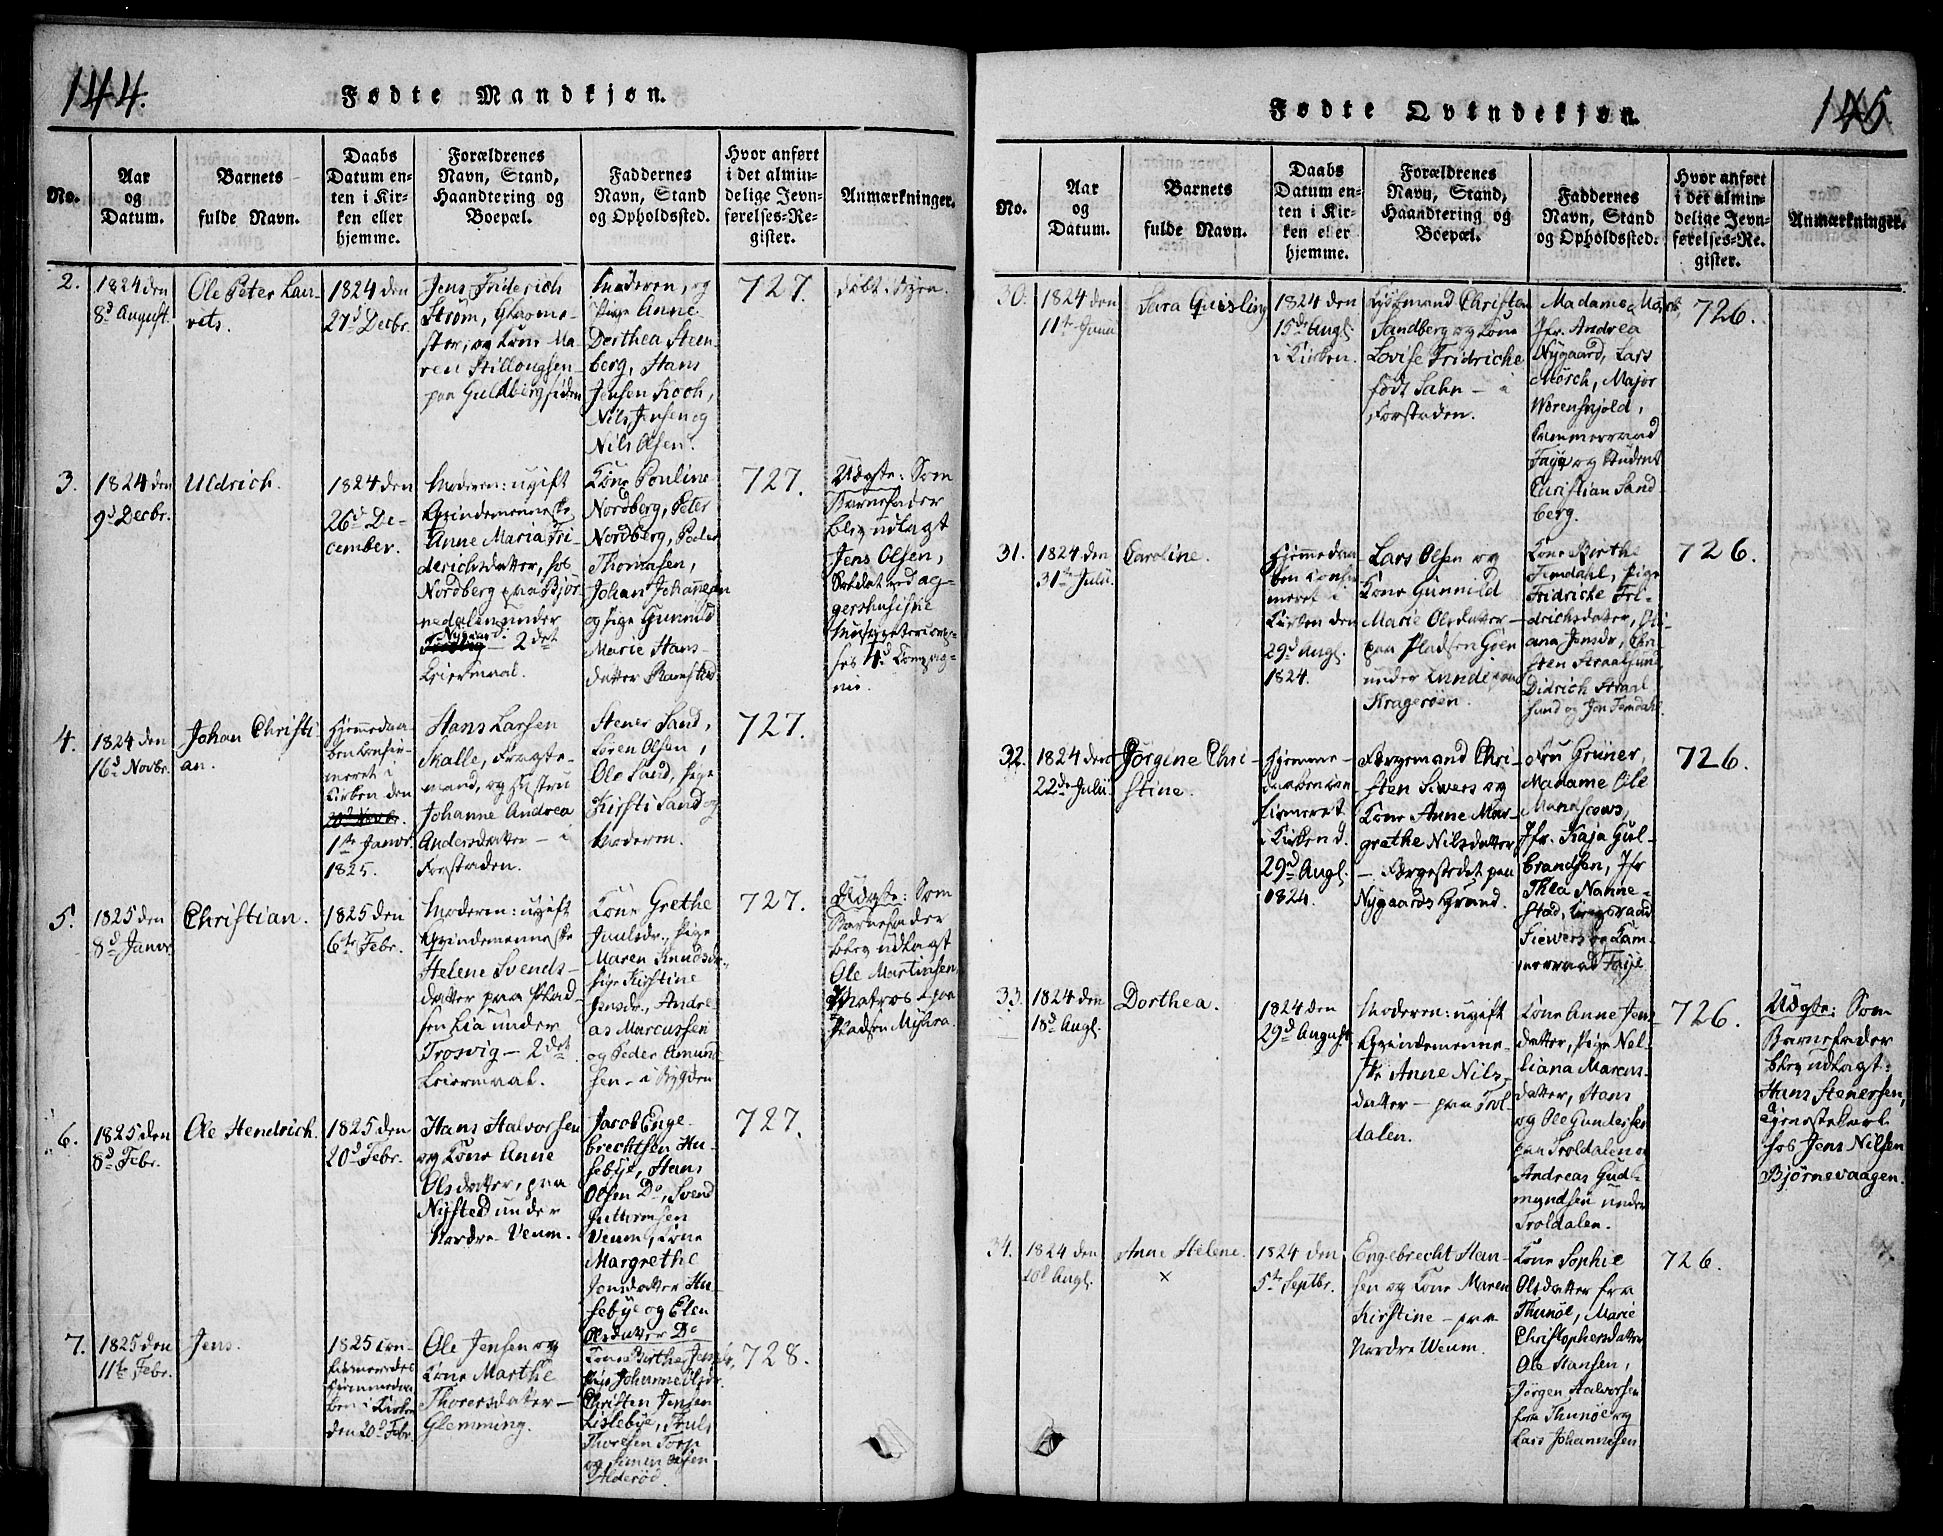 144.
Fødte Mandkjøn.
No.
Aar
og
Datum.
Barnets
fulde Navn.
Daabs
Datum en-
ten i Kir-
ken eller
hjemme.
Forældrenes
Navn, Stand,
Haandtering og
Boepæl.
Faddernes
Navn, Stand
og Opholdssted.
Hvor anført
i det almin-
delige Jevn-
førelses-Re-
gister.
Anmærkninger.
2.
1824 den
8d August.
Ole Peter Lau-
1824 den
27d Decbr.
Jens Friderich
Strøm, Glasme-
ster, og Kone Ma-
ren
paa Guldbergsiden
Moderen, og
Pige Anne
Dorthea Sten-
berg, Hans
Jensen Koch,
Nils Jensen og
Nils Olsen.
727.
døbt i Byen.
3.
1824 den
9d Decbr.
Uldrich.
1824 den
26d De-
cember.
Moderen: ugift
Qvindemenneske
Anne Maria Fri-
derichsdatter, hos
Nordberg paa Bjør-
nedalen under
Nygaard.
2det
Leiermaal.
Kone Pouline
Nordberg, Peter
Nordberg, Peder
Thomasen,
Johan Johannesen
og Pige Gunnild
Marie Hans-
datter Ramstad.
727.
Udgte: Som
Barnefader
blev udlagt
Jens Olsen,
Soldat ved ag-
gershusiske
hos 4d Compag-
nie.
4.
1824 den
16d Novbr.
Johan Christi-
an.
Hjemmedaa-
ben confir-
meret i
Kirken den
1ste Janvr
1825.
Hans Larsen
Skalle, Fragte-
mand, og Hustru
Johanne Andrea
Andersdatter – i
Forstaden.
Stener Sand,
Søren Olsen,
Ole Sand, Pige
Kirsti Sand og
Moderen.
727.
5.
1825 den
8d Janvr.
Christian.
1825 den
6te Febr.
Moderen: ugift
Qvindemenneske
Helene Svends-
datter paa Plad-
sen Lia under
Trosvig – 2det
Leiermaal.
Kone Grethe
Juulsdr., Pige
Maren Knudsdr.,
Pige Kirstine
Jensdr., Andre-
as Marcussen
og Peder Amund-
sen – i Bygden
727.
Udgte: Som
Barnefader
blev udlagt
Ole Martinsen,
Matros – paa
Pladsen Myhra.
6.
1825 den
8d Febr.
Ole Hendrich.
1825 den
20d Febr.
Hans Halvorsen
og Kone Anne
Olsdatter, paa
Nysted under
Nordre Veum.
Jacob Enge-
brechtsen Hu-
sebye, Hans
Olsen Do, Svend
Guttormsen
Veum, Kone
Margrethe
Jonsdatter Hu-
sebye og Elen
Olsdatter Do
727.
7.
1825 den
11te Febr.
Jens.
1825 con-
firmeredes
Hjemmedaa-
ben i Kirken
den 20d Febr.
Ole Jensen og
Kone Marthe
Thorersdatter –
Glemming.
Kone Birthe Jensdr,
Pige Johanne Olsdr.
Christen Jensen
Lislebye, Truls
Thoresen Torp
og Simen Olsen
Alderød.
728.
145
Fødte Qvindekjøn.
No.
Aar
og
Datum.
Barnets
fulde Navn.
Daabs
Datum en-
ten i Kir-
ken eller
hjemme.
Forældrenes
Navn, Stand,
Haandtering og
Boepæl.
Faddernes
Navn, Stand
og Opholdssted.
Hvor anført
i det almin-
delige Jevn-
førelses-Re-
gister.
Anmærkninger.
30.
1824 den
11te Junii
Sara Quisling
1824 den
15d Augl.
i Kirken.
Kjøbmand Christen
Sandberg og Kone
Lovise Fridriche
født Sahn – i
Forstaden.
Madame Mørch,
Jfr. Andrea
Nygaard, Lars
Mørch, Major
Wørenskjold,
Kammerraad
Faye og Student
Christian Sand-
berg.
726.
31.
1824 den
31te Julii.
Caroline.
Hjemmedaa-
ben confir-
meret i
Kirken den
29d Augl.
1824.
Lars Olsen og
Kone Gunnild
Marie Olsdatter –
paa Pladsen Goen
under Lunde paa
Kragerøen.
Kone Birthe
Femdahl, Pige
Fridriche Fri-
drichsdatter, Pi-
ana Jensdr, Chri-
sten Straalsund,
Didrich Straal-
sund og Jon Femdahl.
726.
32.
1824 den
22de Julii.
Jørgine Chri-
stine.
Hjemme-
daaben con-
firmeret
i Kirken d.
29d Augl.
1824.
Færgemand Chri-
sten Siwers og
Kone Anne Mar-
grethe Nilsdatter
– Færgestedet paa
Nygaards Grund.
Fru Grüner,
Madame Ole
Jfr. Kaja Gul-
brandsen, Jfr
Thea Nanne-
stad, Krigsraad
Siewers og Kam-
merraad Faye
726.
33.
1824 den
18d Augl.
Dorthea.
1824 den
29d August
Moderen: ugift
Qvindemenne-
ske Anne Nils-
datter – paa Trol-
dalen.
Kone Anne Jens-
datter, Pige Nel-
liana Marcus-
datter, Hans
og Ole Gundersen
paa Troldalen og
Andreas Gud-
myndsen under
Troldalen.
726.
Udgte: Som
Barnefader
blev udlagt:
Hans Stenersen,
Tjenestekarl
hos Jens Nilsen
Bjørnevaagen.
34.
1824 den
10d Augl.
Anne Helene.
×
1824 den
5te Septbr.
Engebrecht Han-
sen og Kone Maren
Kirstine – paa
Nordre Weum.
Kone Sophie
Olsdatter fra
Thunøe, Marie
Christophersdatter
Ole Hansen,
Jørgen Halvorsen
fra Thunøe og
Lars Johannesen
726.